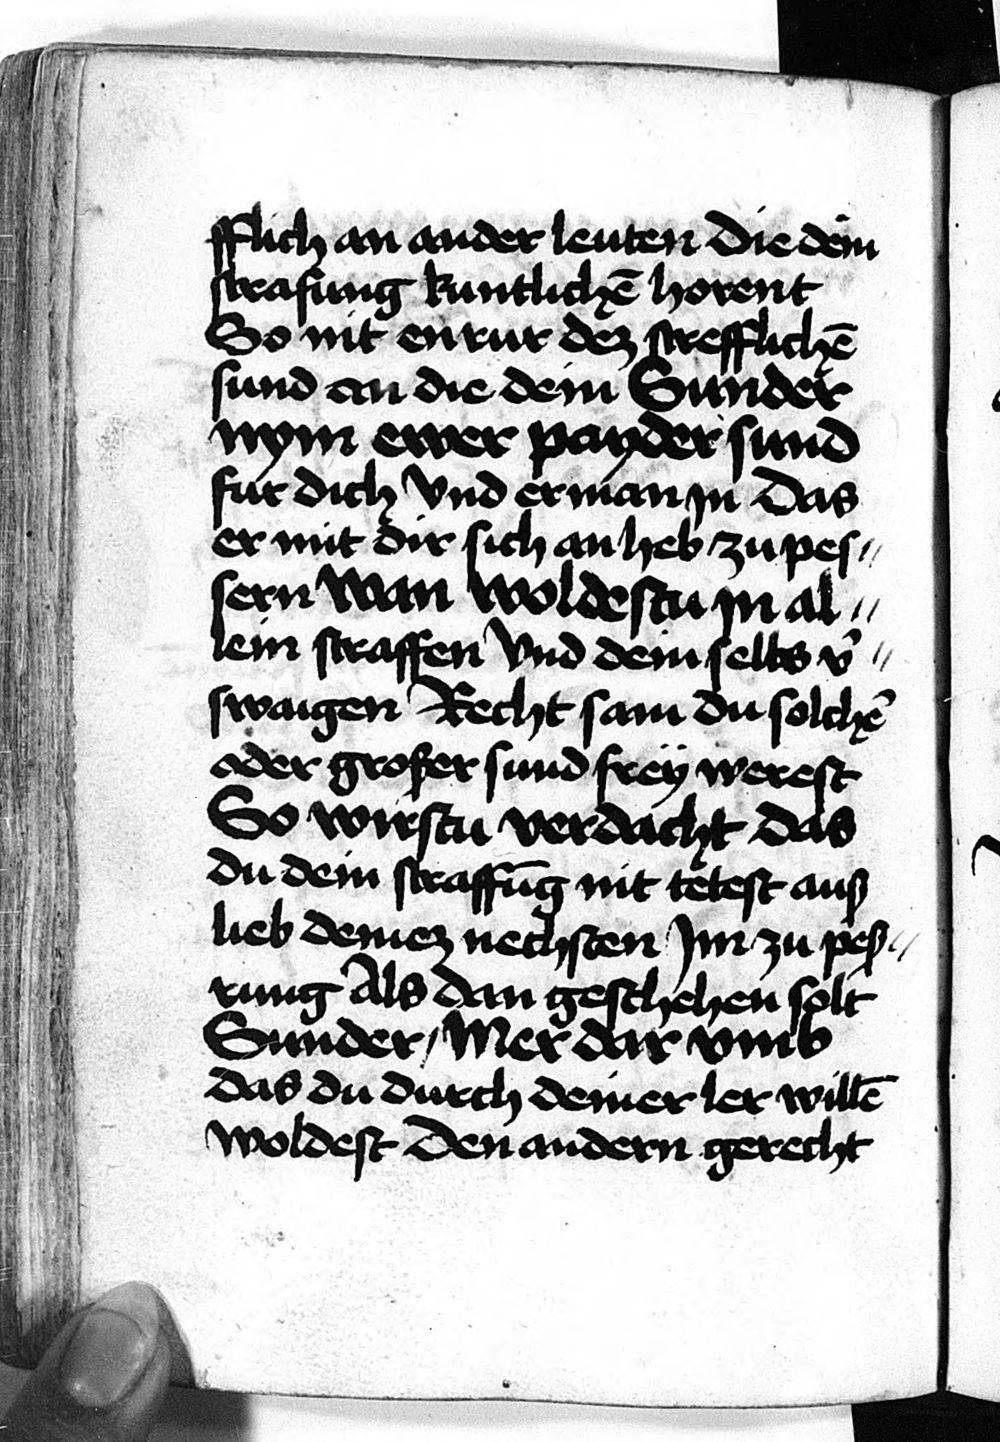 fflich an ander leuten Die dein
strafung kuntlichē horent
So nit enrur dez strefflichē
sund an die dein Sunder
nym ewer payder sund
fur dich Vnd erman jn Das
er mit dir sich an heb zu pes//
sern Wan Woldestu jn al //
lein straffen Vnd dein selbs v̉ //
swaigen Recht sam du solchē
oder großer sund freÿ werest
So wirstu verdacht das
du dein straffūg nit tetest auß
lieb deinez nechsten Jm zu peß//
rung Als dan geschehen solt
Sunder / Mer dar vmb
das du durch deiner ler willē
woldest Den andern gerecht